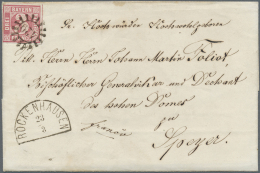 BAYERN
Sr. Hochwürden Hochwohlgeboren
dem Herrn Herrn Johann Martin Foliot,
Bischöflicher Generalvikar und Dechant
des hohen Domes
zu
Franco
Speyer.
ROCKENHAUSEN
23
3